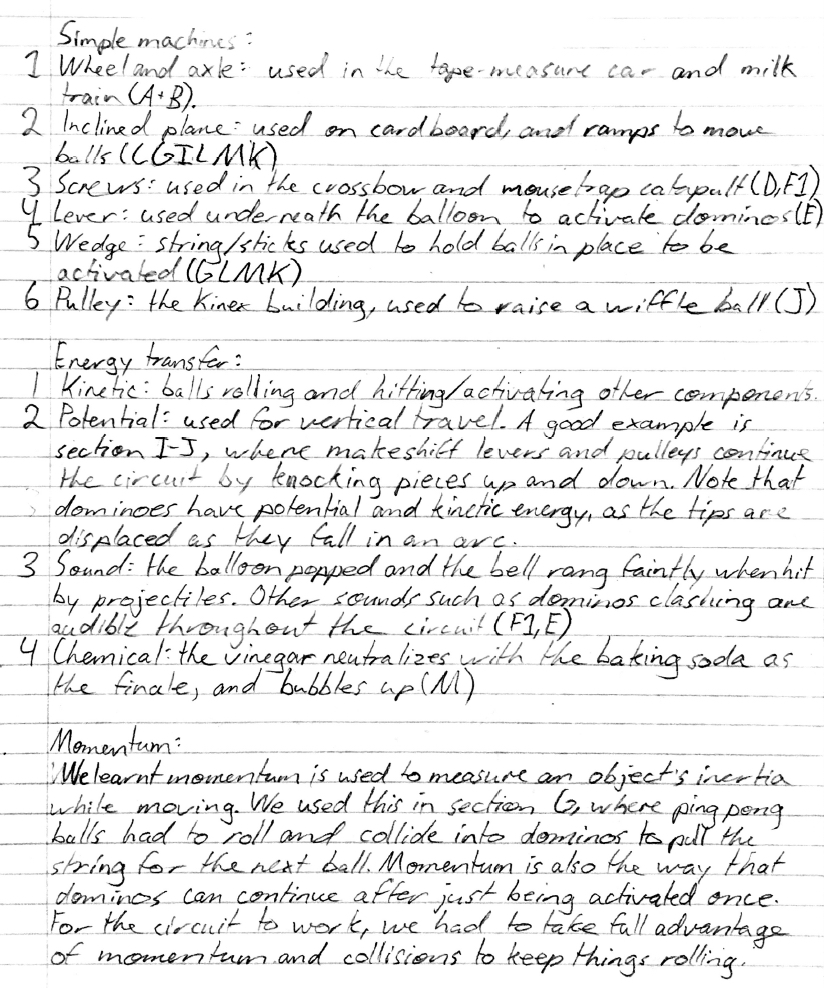 Simple machines:
1 Wheel and axle: used in the tape-measure car and milk
train (A+B).
2 Inclined plane: used on cardboard, and ramps to move
balls (CGILMK)
3 Screws: used in the crossbow and mousetrap catapult (D,F1)
4 Lever: used underneath the balloon to activate dominos (E)
5 Wedge: string/sticks used to hold balls in place to be
activated (GLMK)
6 Pulley: the Kinex building, used to raise a wiffle ball (J)
Energy transfer:
1 Kinetic: balls rolling and hitting/activating other components.
2 Potential: used for vertical travel. A good example is
section I-J, where makeshift levers and pulleys continue
the circuit by knocking pieces up and down. Note that
dominoes have potential and kinetic energy, as the tips are
displaced as they fall in an arc.
3 Sound: the balloon popped and the bell rang faintly when hit
by projectiles. Other sounds such as dominos clashing are
audible throughout the circuit (F1,E)
4 Chemical: the vinegar neutralizes with the baking soda as
the finale, and bubbles up (M)
Momentum:
We learnt momentum is used to measure an object's inertia
while moving. We used this in section G, where ping pong
balls had to roll and collide into dominos to pull the
string for the next ball. Momentum is also the way that
dominos can continue after just being activated once.
For the circuit to work, we had to take full advantage
of momentum and collisions to keep things rolling.